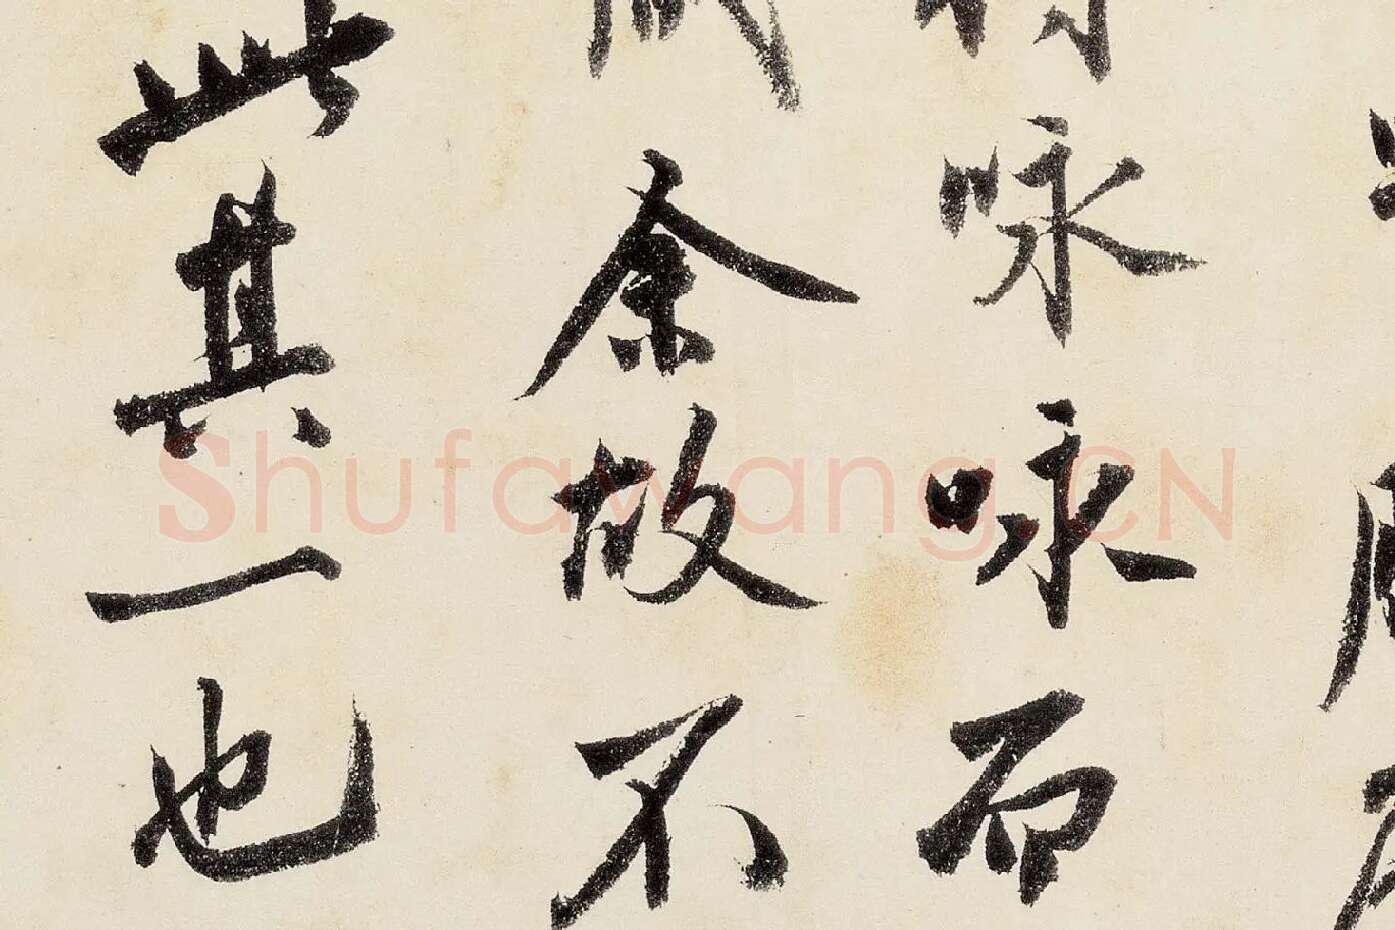 咏咏而
余故不
此其一也
Shufawang.CN